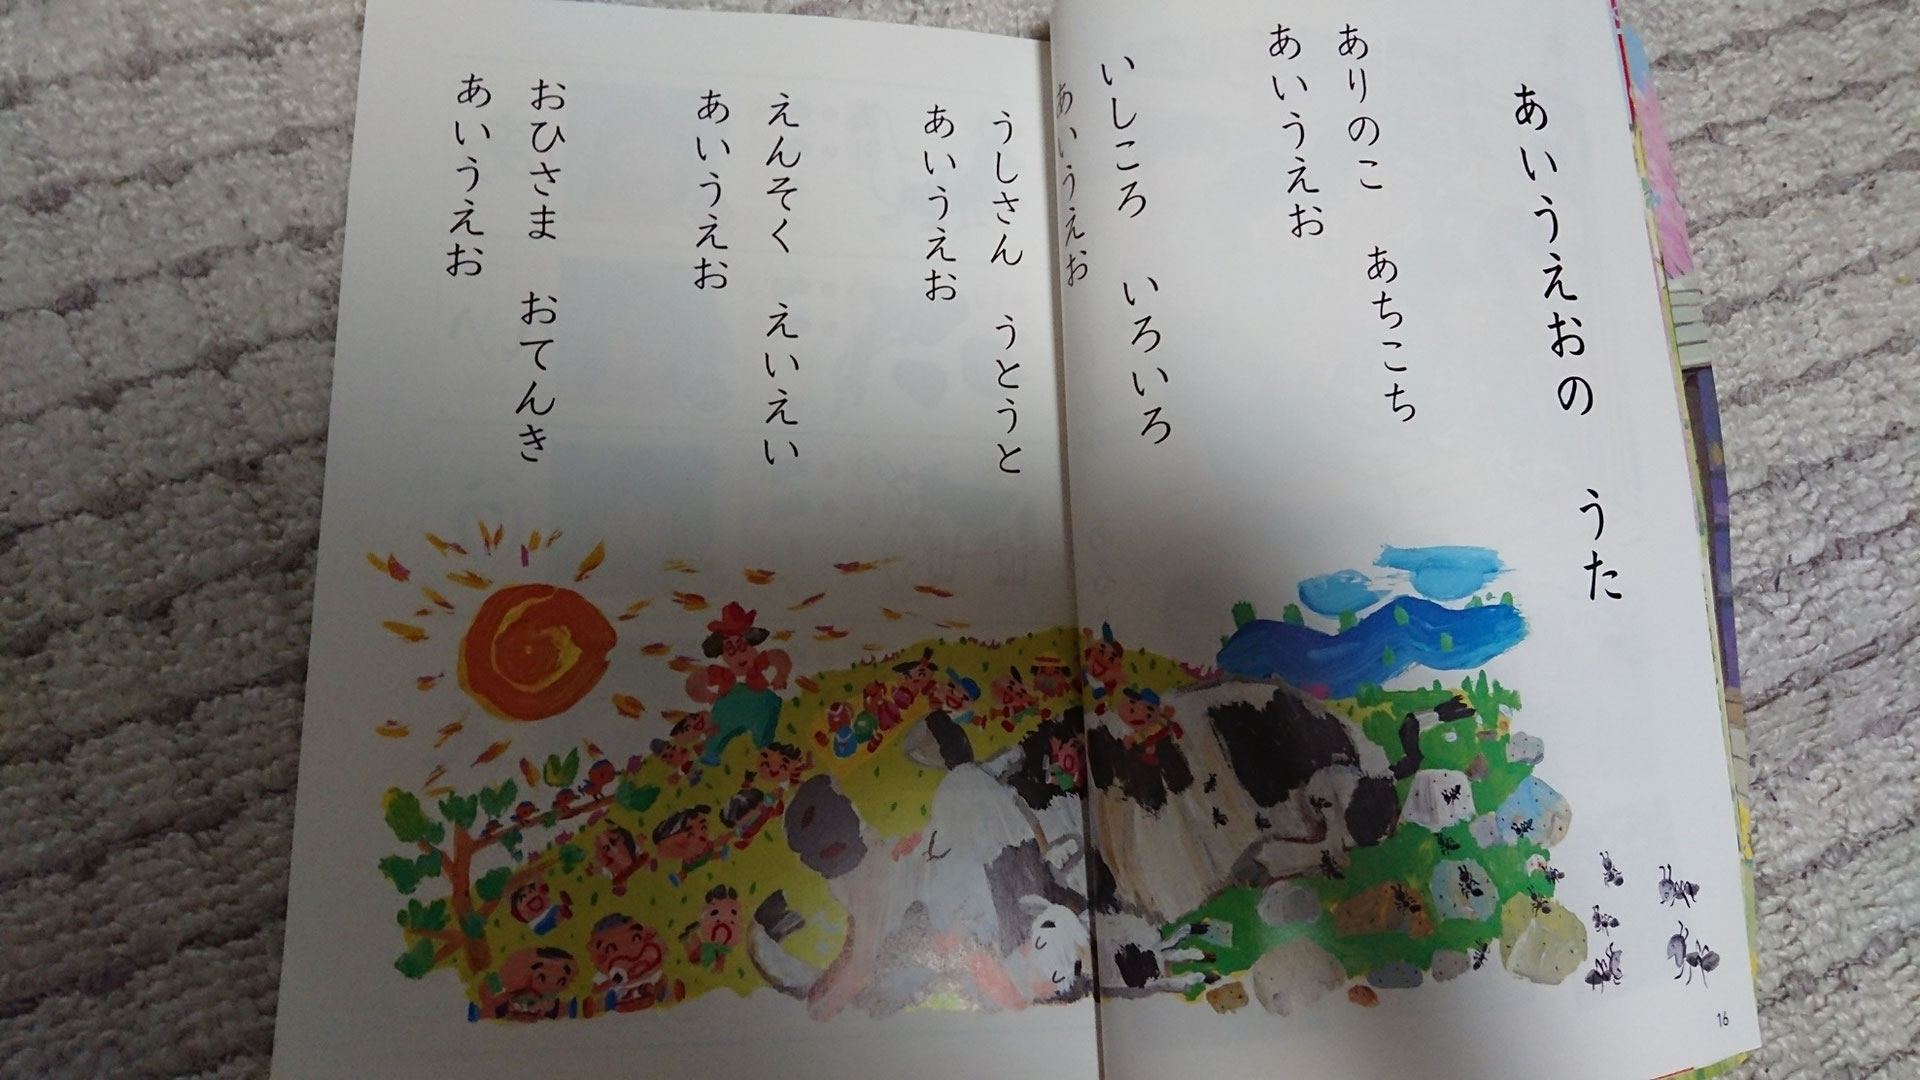 あいうえおの　うた
ありのこ　あちこち
あいうえお
いしころ　いろいろ
あいうえお
うしさん　うとうと
あいうえお
えんそく　えいえい
あいうえお
おひさま　おてんき
あいうえお
16